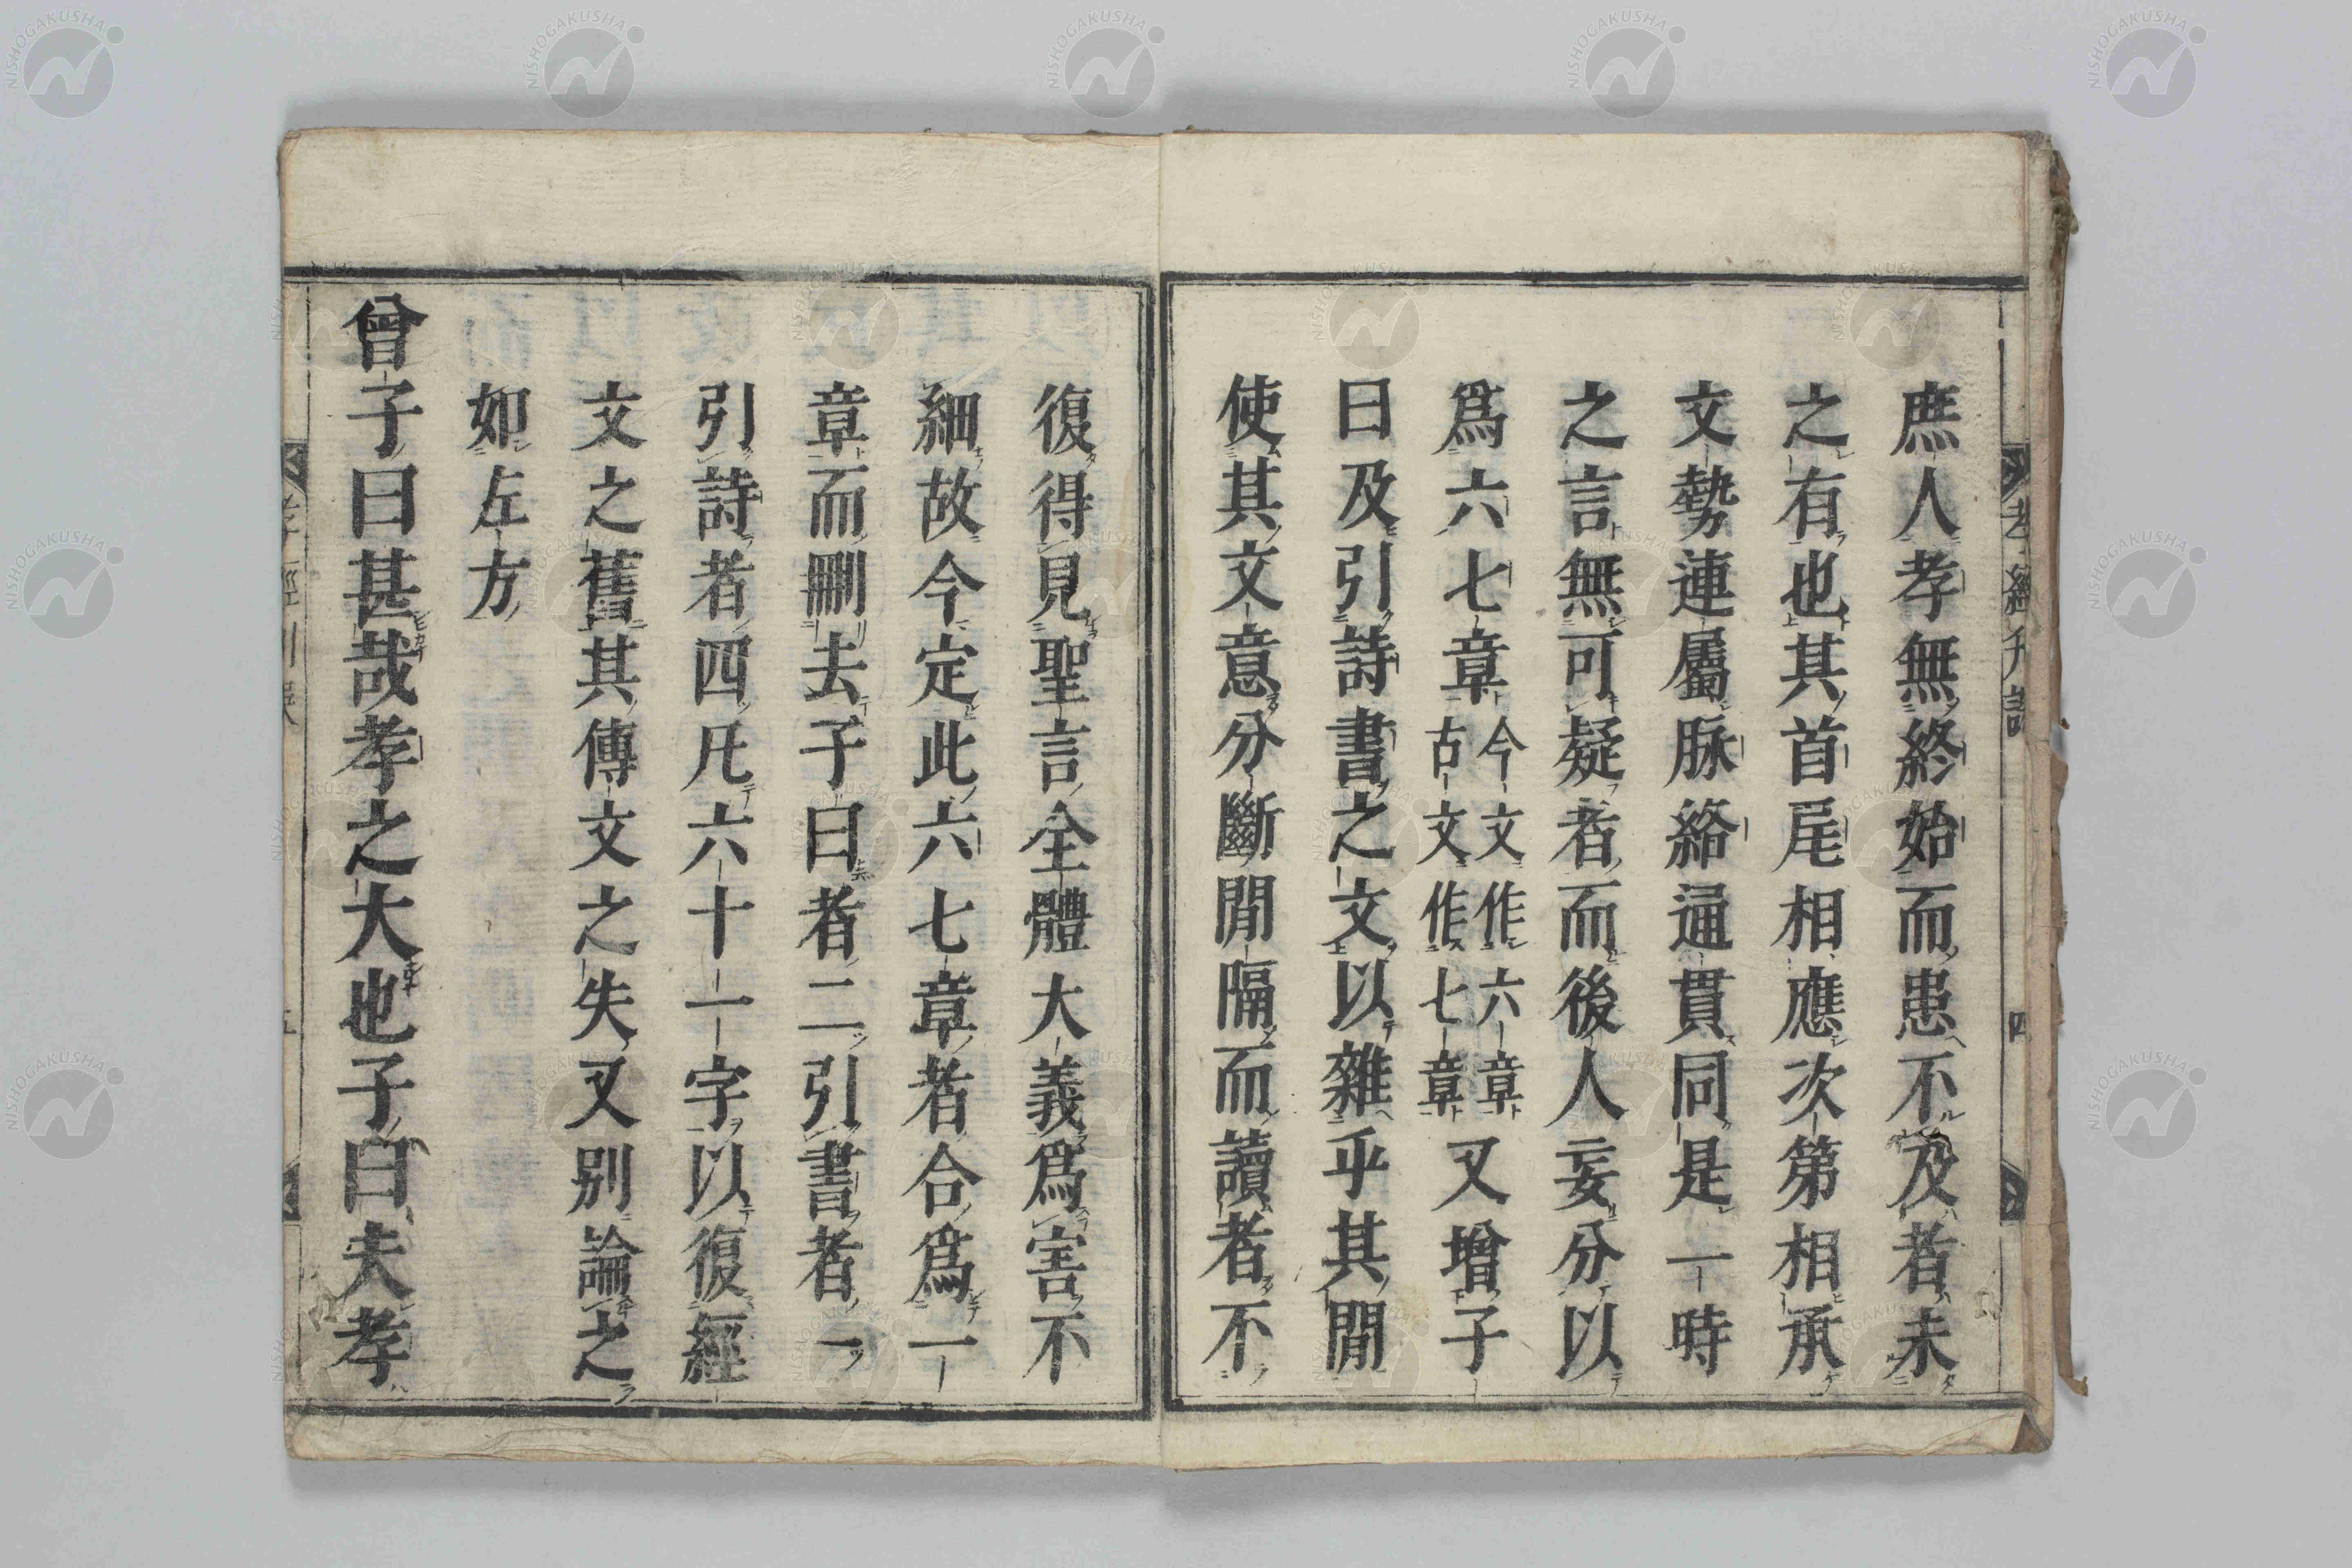 庶人孝無終始而患不及者未
之有也其首尾相應次第相承
文勢連屬脉絡通貫同是一時
之言無可疑者而後人妄分以
爲六七章今文作六章古文作七章又增子
曰及引詩書之文以雜乎其閒
使其文意分斷閒隔而讀者不
復得見聖言全體大義爲害不
細故今定此六七章者合爲一
章而刪去子曰者二引書者一
引詩者四凡六十一字以復經
文之舊其傳文之失又別論之
如左方
曾子曰甚哉孝之大也子曰夫孝
四
NISHOGAKUSHA